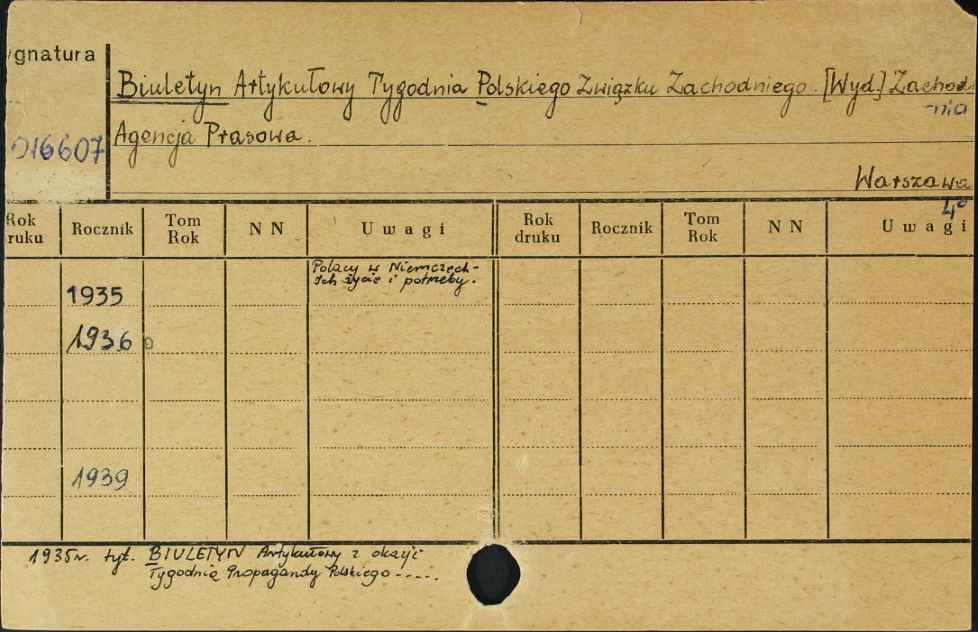 ygnatura
Biuletyn Artykułowy Tygodnia Polskiego Związku Zachodniego. [Wyd.] Zachod-
-nia
Agencja Prasowa.
016607
Warszawa
4°
Rok druku Rocznik Tom Rok N N Uwagi Rok druku Rocznik Tom Rok N N Uwagi
Polacy w Niemczech-
Ich życie i potrzeby.
1935
1936
1939
1935r. tyt. BIULETYN Artykułowy z okazji
Tygodnia Propagandy Polskiego -----.